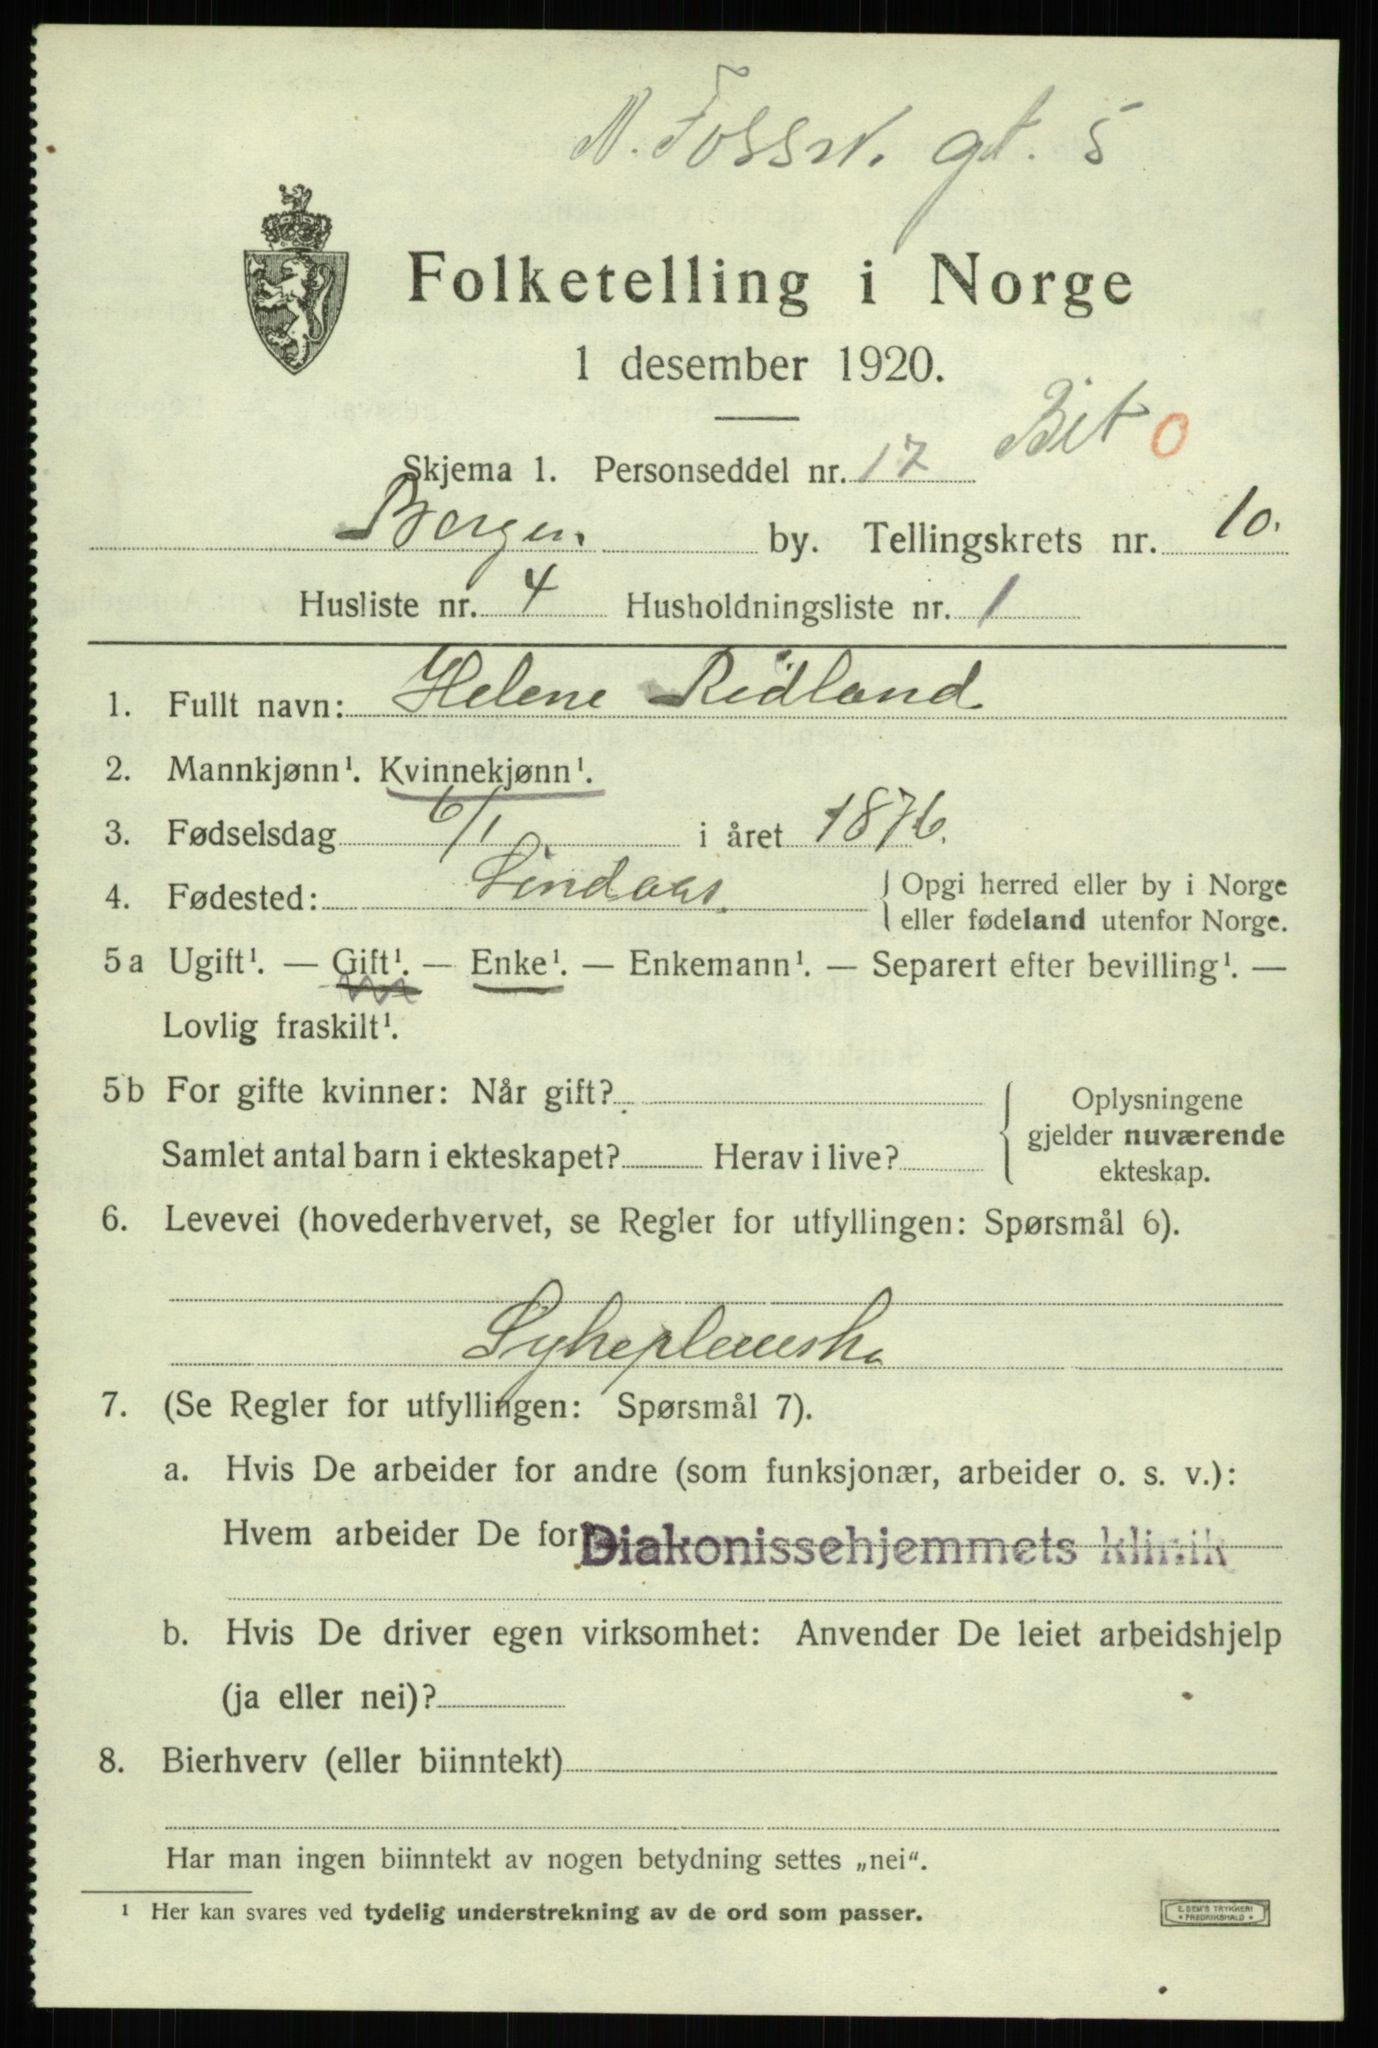 N. Fossw. gt. 5
Folketelling i Norge
1 desember 1920.
Bet 0
Skjema 1. Personseddel nr. 17
Bergen. by. Tellingskrets nr. 10.
Husliste nr. 4 Husholdningsliste nr. 1
1. Fullt navn: Helene Ridland
2. Mannkjønn¹. Kvinnekjønn¹.
3. Fødselsdag 6/1 i året 1876.
4. Fødested: Lindaas. Opgi herred eller by i Norge
eller fødeland utenfor Norge.
5a Ugift¹. — Gift¹. — Enke¹. — Enkemann¹. — Separert efter bevilling¹. —
Lovlig fraskilt¹.
5b For gifte kvinner: Når gift? Oplysningene
gjelder nuværende
Samlet antal barn i ekteskapet? Herav i live? ekteskap.
6. Levevei (hovederhvervet, se Regler for utfyllingen: Spørsmål 6).
Sykepleierske
7. (Se Regler for utfyllingen: Spørsmål 7).
a. Hvis De arbeider for andre (som funksjonær, arbeider o. s. v.):
Hvem arbeider De for Diakonissehjemmets klinik
b. Hvis De driver egen virksomhet: Anvender De leiet arbeidshjelp
(ja eller nei)?
8. Bierhverv (eller biinntekt)
Har man ingen biinntekt av nogen betydning settes „nei“.
¹ Her kan svares ved tydelig understrekning av de ord som passer.
E. SEM'S TRYKKERI
• FREDRIKSHALD •